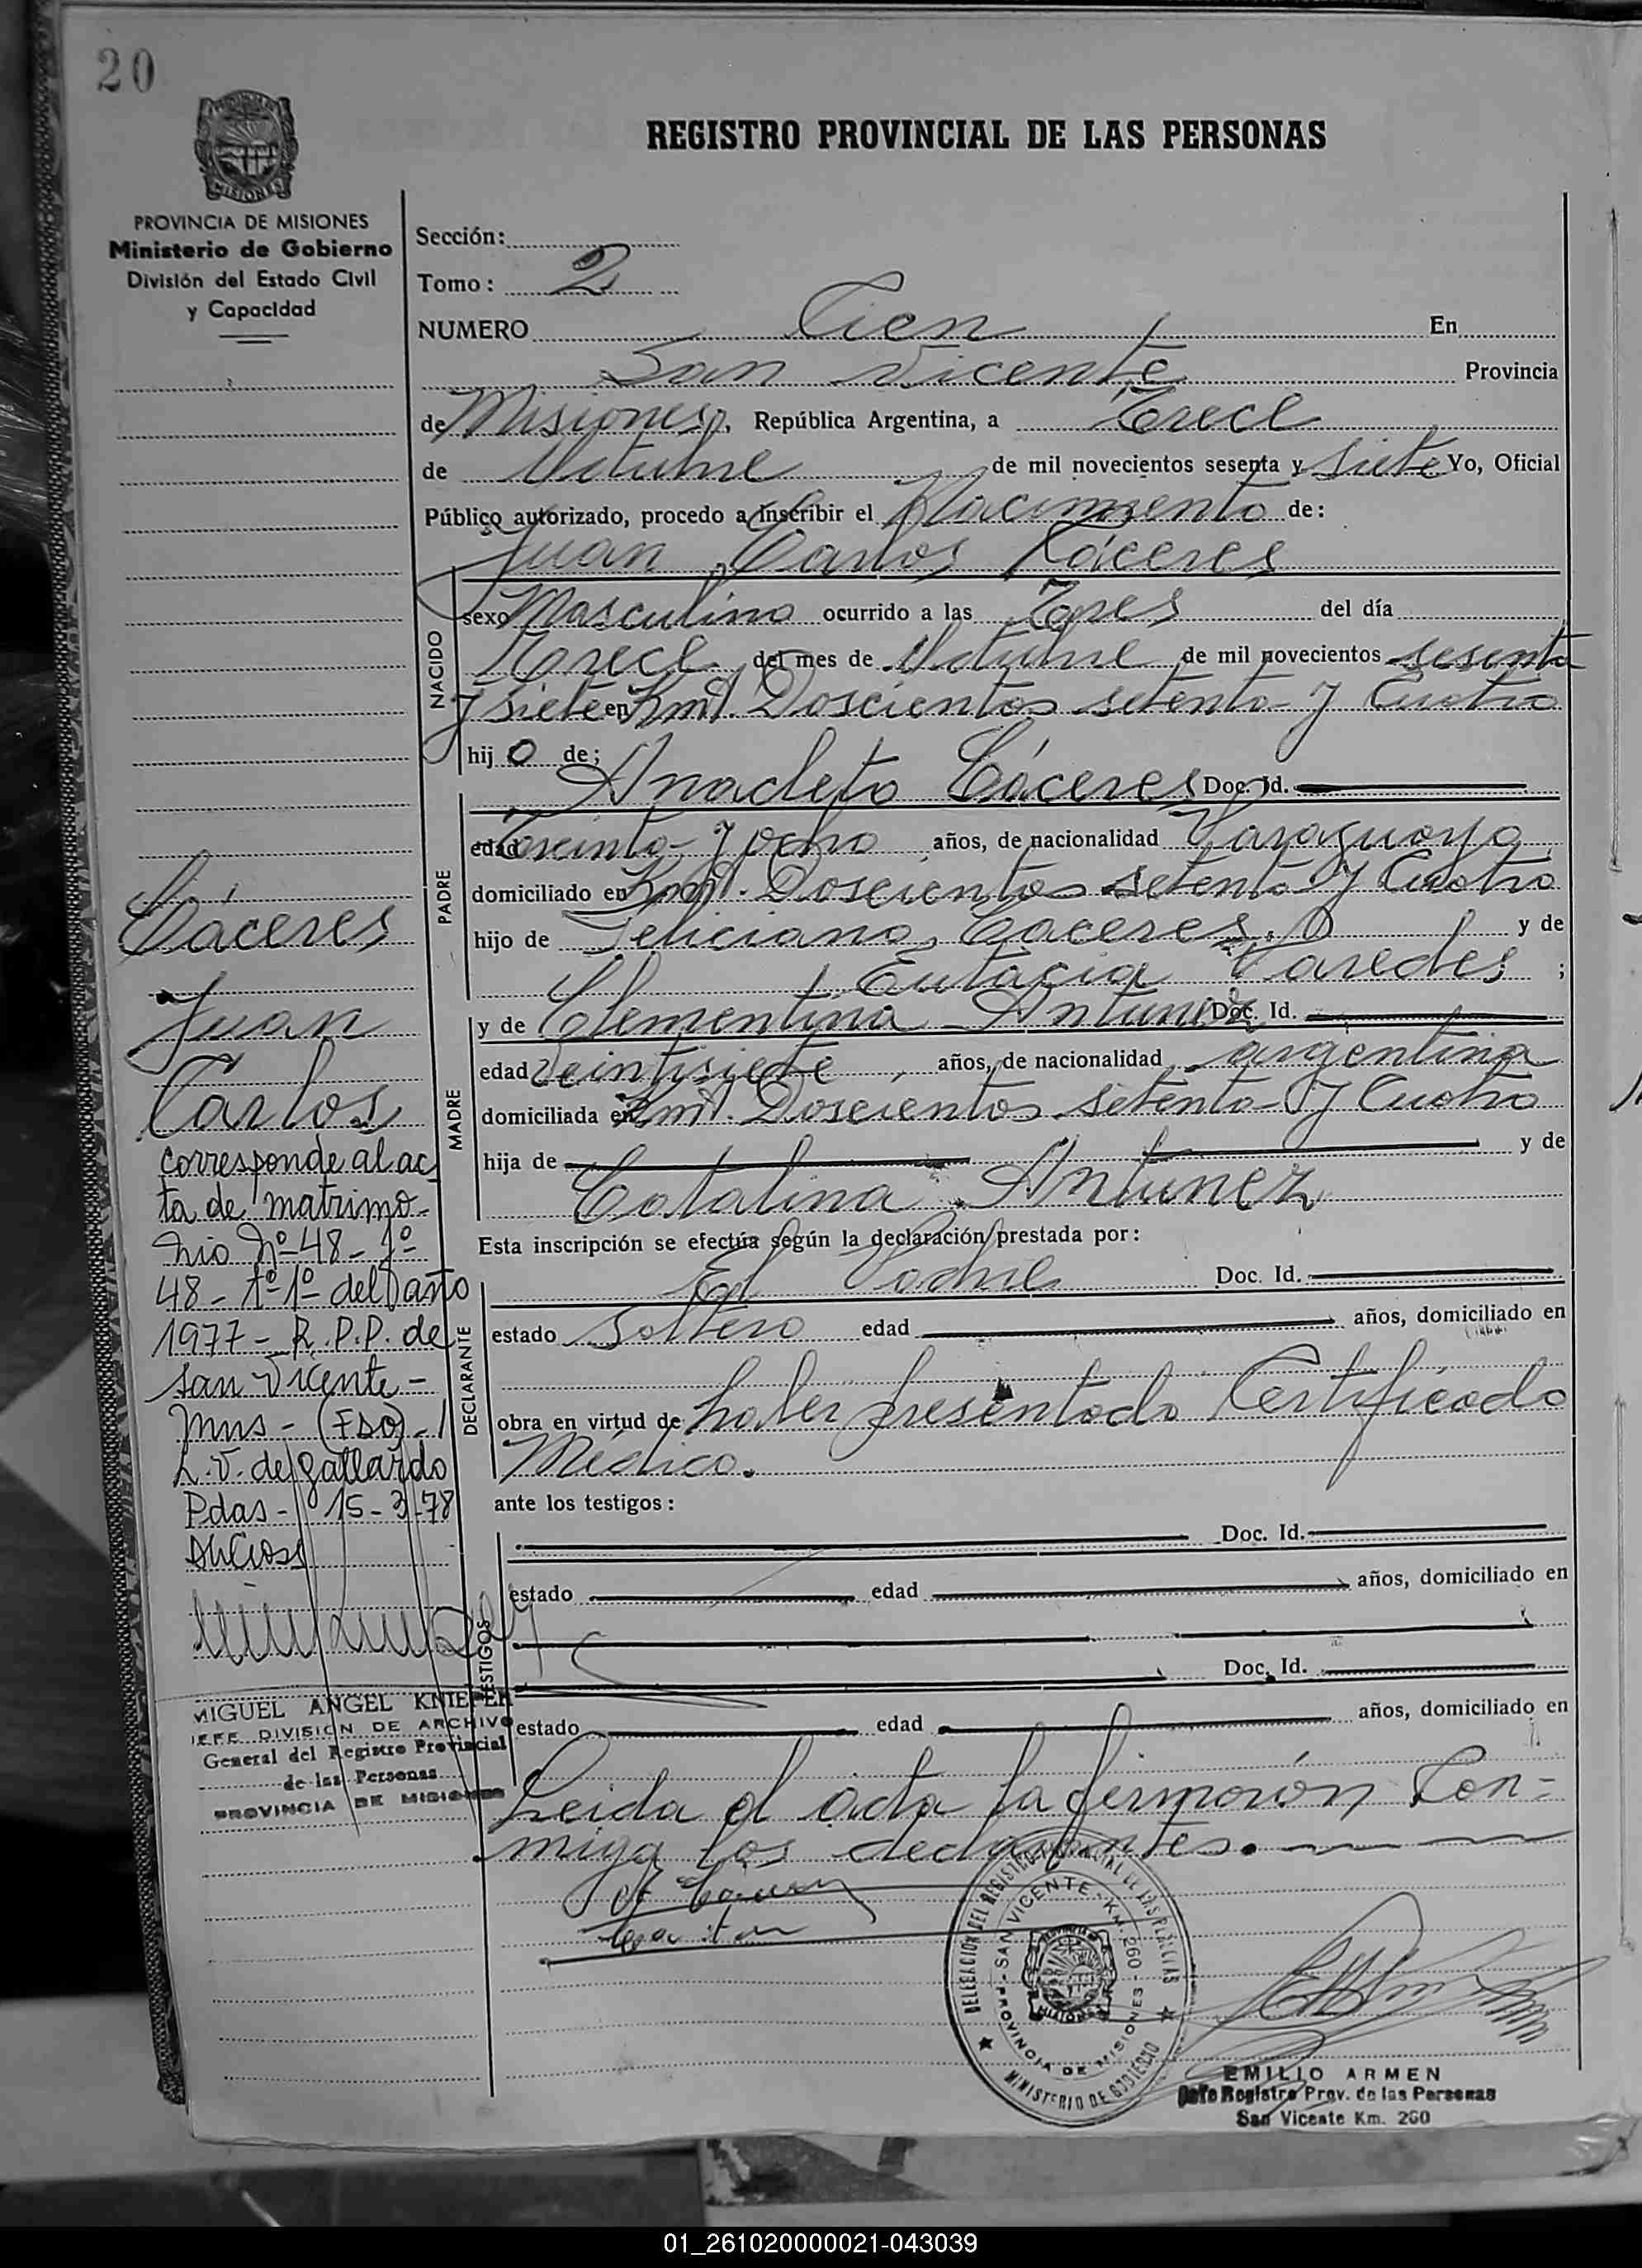 20
REGISTRO PROVINCIAL DE LAS PERSONAS
PROVINCIA DE MISIONES
Ministerio de Gobierno
División del Estado Civil
y Capacidad
Sección:
Tomo: 2
NUMERO Cien En
San Vicente Provincia
de Misiones, República Argentina, a Trece
de Octubre de mil novecientos sesenta y siete Yo, Oficial
Público autorizado, procedo a inscribir el Nacimiento de:
Juan Carlos Cáceres
NACIDO
sexo Masculino ocurrido a las Tres del día
Trece del mes de Octubre de mil novecientos sesenta
y siete en Kmt. Doscientos setenta y Cuatro
hijo de;
Anacleto Cáceres Doc. Id.
PADRE
edad Treinta y ocho años, de nacionalidad Paraguaya
domiciliado en Kmt. Doscientos setenta y Cuatro
hijo de Feliciano Caceres. y de
Eutacia Paredes ;
MADRE
y de Clementina Antunez Doc. Id.
edad Veintisiete, años, de nacionalidad argentina
domiciliada en Kmt. Doscientos setenta y Cuatro
hija de y de
Catalina Antunez
Esta inscripción se efectúa según la declaración prestada por:
DECLARANTE
El Padre Doc. Id.
estado Soltero edad años, domiciliado en
obra en virtud de haber presentado Certificado
Médico.
ante los testigos:
TESTIGOS
Doc. Id.
estado edad años, domiciliado en
Doc. Id.
estado edad años, domiciliado en
Leida el acta la firmarón Con=
migo los declarantes.
Cáceres
Juan
Carlos
corresponde al ac
ta de matrimo-
nio Nº-48- Fº
48- Tº-1º del año
1977- R.P.P. de
San Vicente-
Mnes- (FDO)-
L.V. de Gallardo
Pdas- 15-3-78
MIGUEL ANGEL KNIEPER
JEFE DIVISION DE ARCHIVO
General del Registro Provincial
de las Personas
PROVINCIA DE MISIONES
DELEGACION DEL REGISTRO PROVINCIAL DE LAS PERSONAS
SAN VICENTE - KM. 260 -
PROVINCIA DE MISIONES
MINISTERIO DE GOBIERNO
MISIONES
EMILIO ARMEN
Jefe Registro Prov. de las Personas
San Vicente Km. 260
01_261020000021-043039